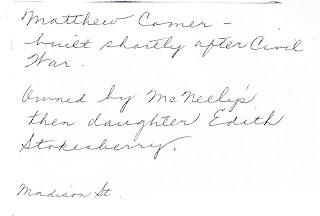 Matthew Comer –
built shortly after Civil
War.
Owned by McNeely's
then daughter Edith
Stokesberry.
Madison St.